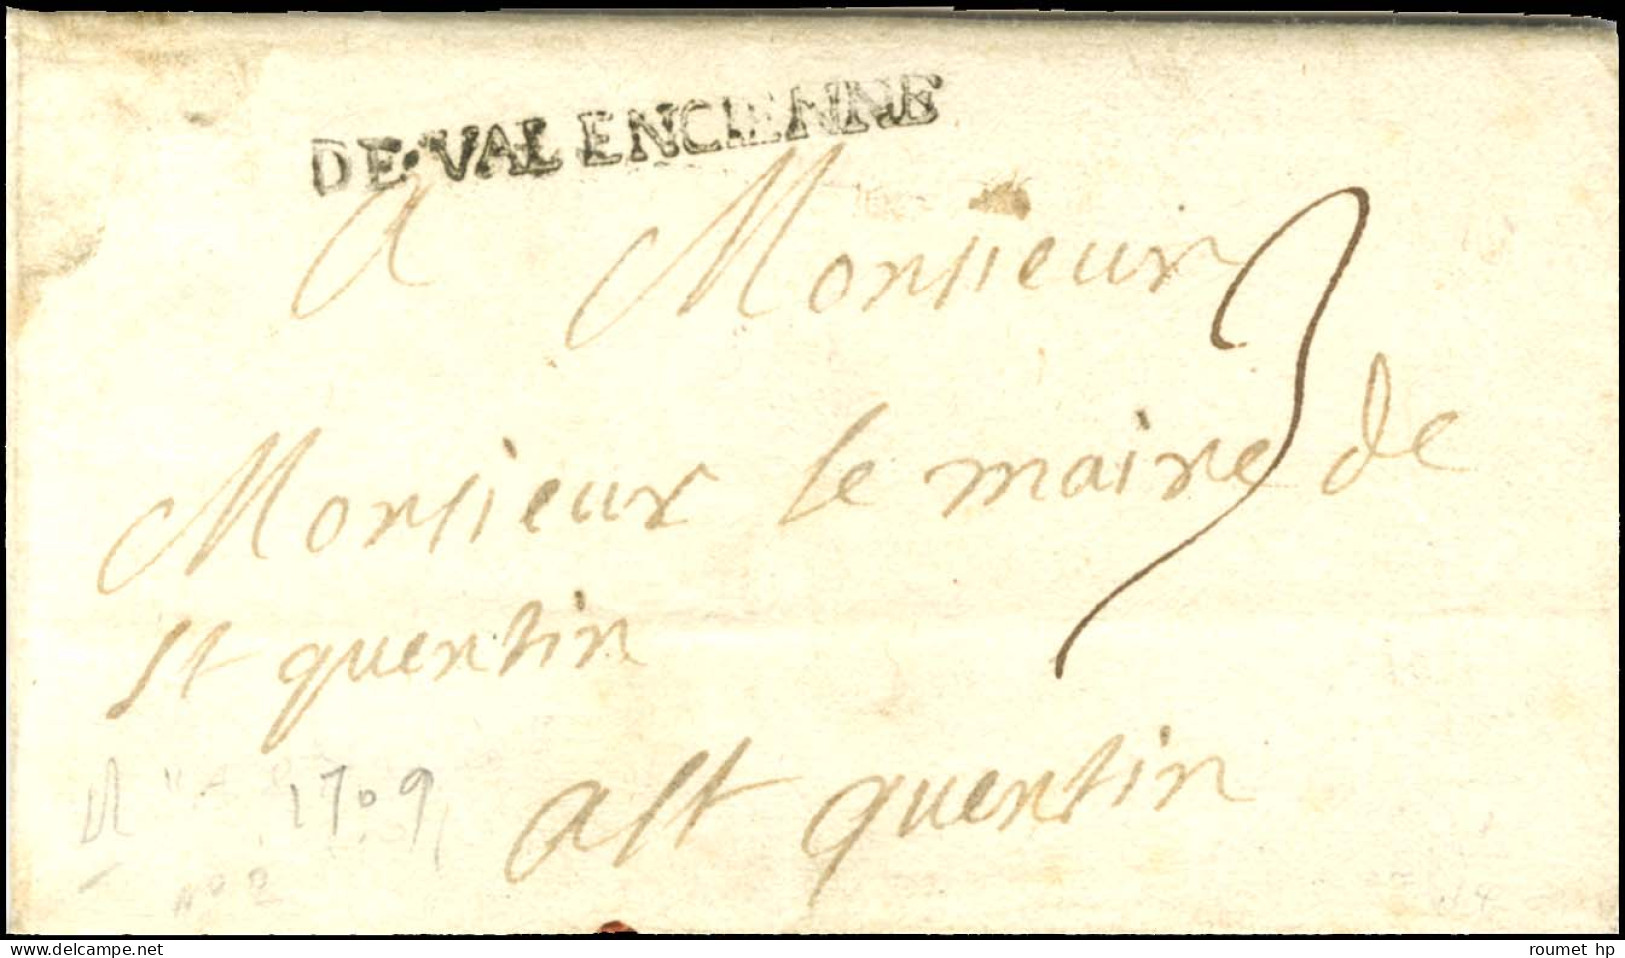 DE·VALENCIENNE
A Monsieur
3
Monsieur le maire de
st quentin
a st quentin
1709
N° 2
roumet hp